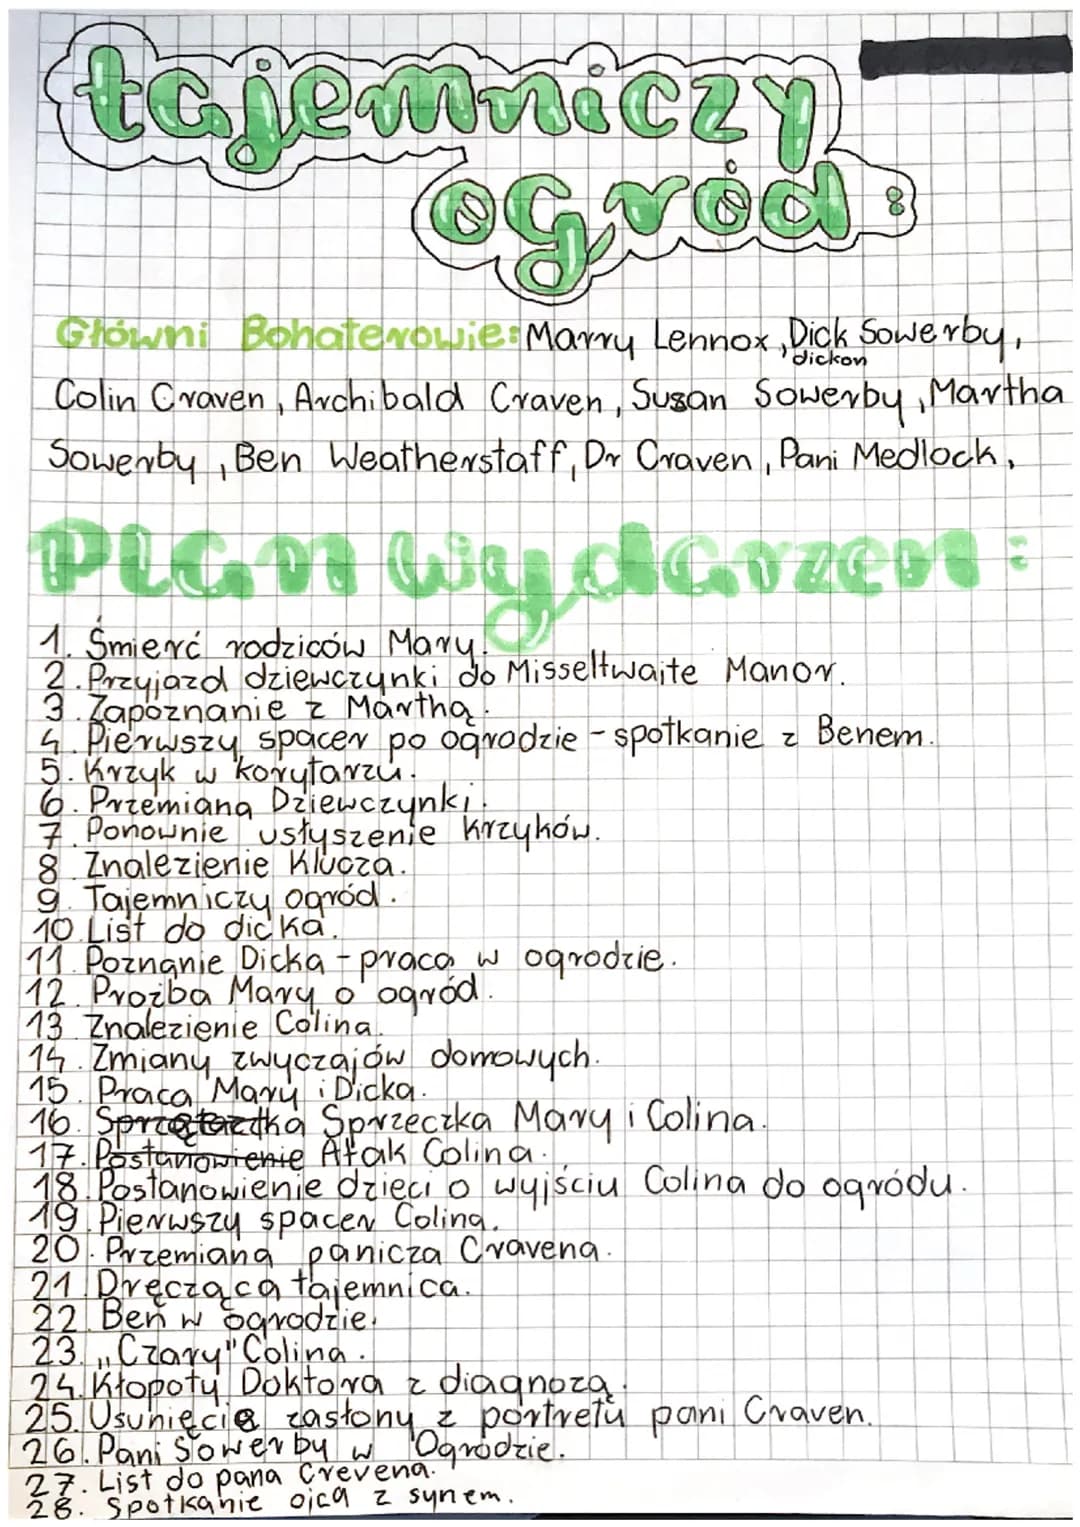 tajemniczy
ogród:
Główni Bohaterowie: Marry Lennox, Dick Sowerby,
dickon
Colin Craven, Archibald Craven, Susan Sowerby, Martha
Sowerby, Ben Weatherstaff, Dr Craven, Pani Medlock,
Plan wydarzeń:
1. Śmierć rodziców Mary.
2. Przyjazd dziewczynki do Misseltwaite Manor.
3. Zapoznanie z Marthą.
4. Pierwszy spacer po ogrodzie - spotkanie z Benem.
5. Krzyk w korytarzu.
6. Przemiana Dziewczynki.
7. Ponownie usłyszenie Krzyków.
8. Znalezienie Klucza.
9. Tajemniczy ogród.
10. List do dicka.
11. Poznanie Dicka - praca w ogrodzie.
12. Proźba Mary o ogród.
13. Znalezienie Colina.
14. Zmiany zwyczajów domowych.
15. Praca Mary i Dicka.
16. Sprzeczka Mary i Colina.
17. Postanowienie Atak Colina.
18. Postanowienie dzieci o wyjściu Colina do ogródu.
19. Pierwszy spacer Colina.
20. Przemiana panicza Cravena.
21. Dręcząca tajemnica.
22. Ben w ogrodzie.
23. „Czary" Colina.
24. Kłopoty Doktora z diagnozą.
25. Usunięcie zasłony z portretu pani Craven.
26. Pani Sowerby w Ogrodzie.
27. List do pana Crevena.
28. Spotkanie ojca z synem.